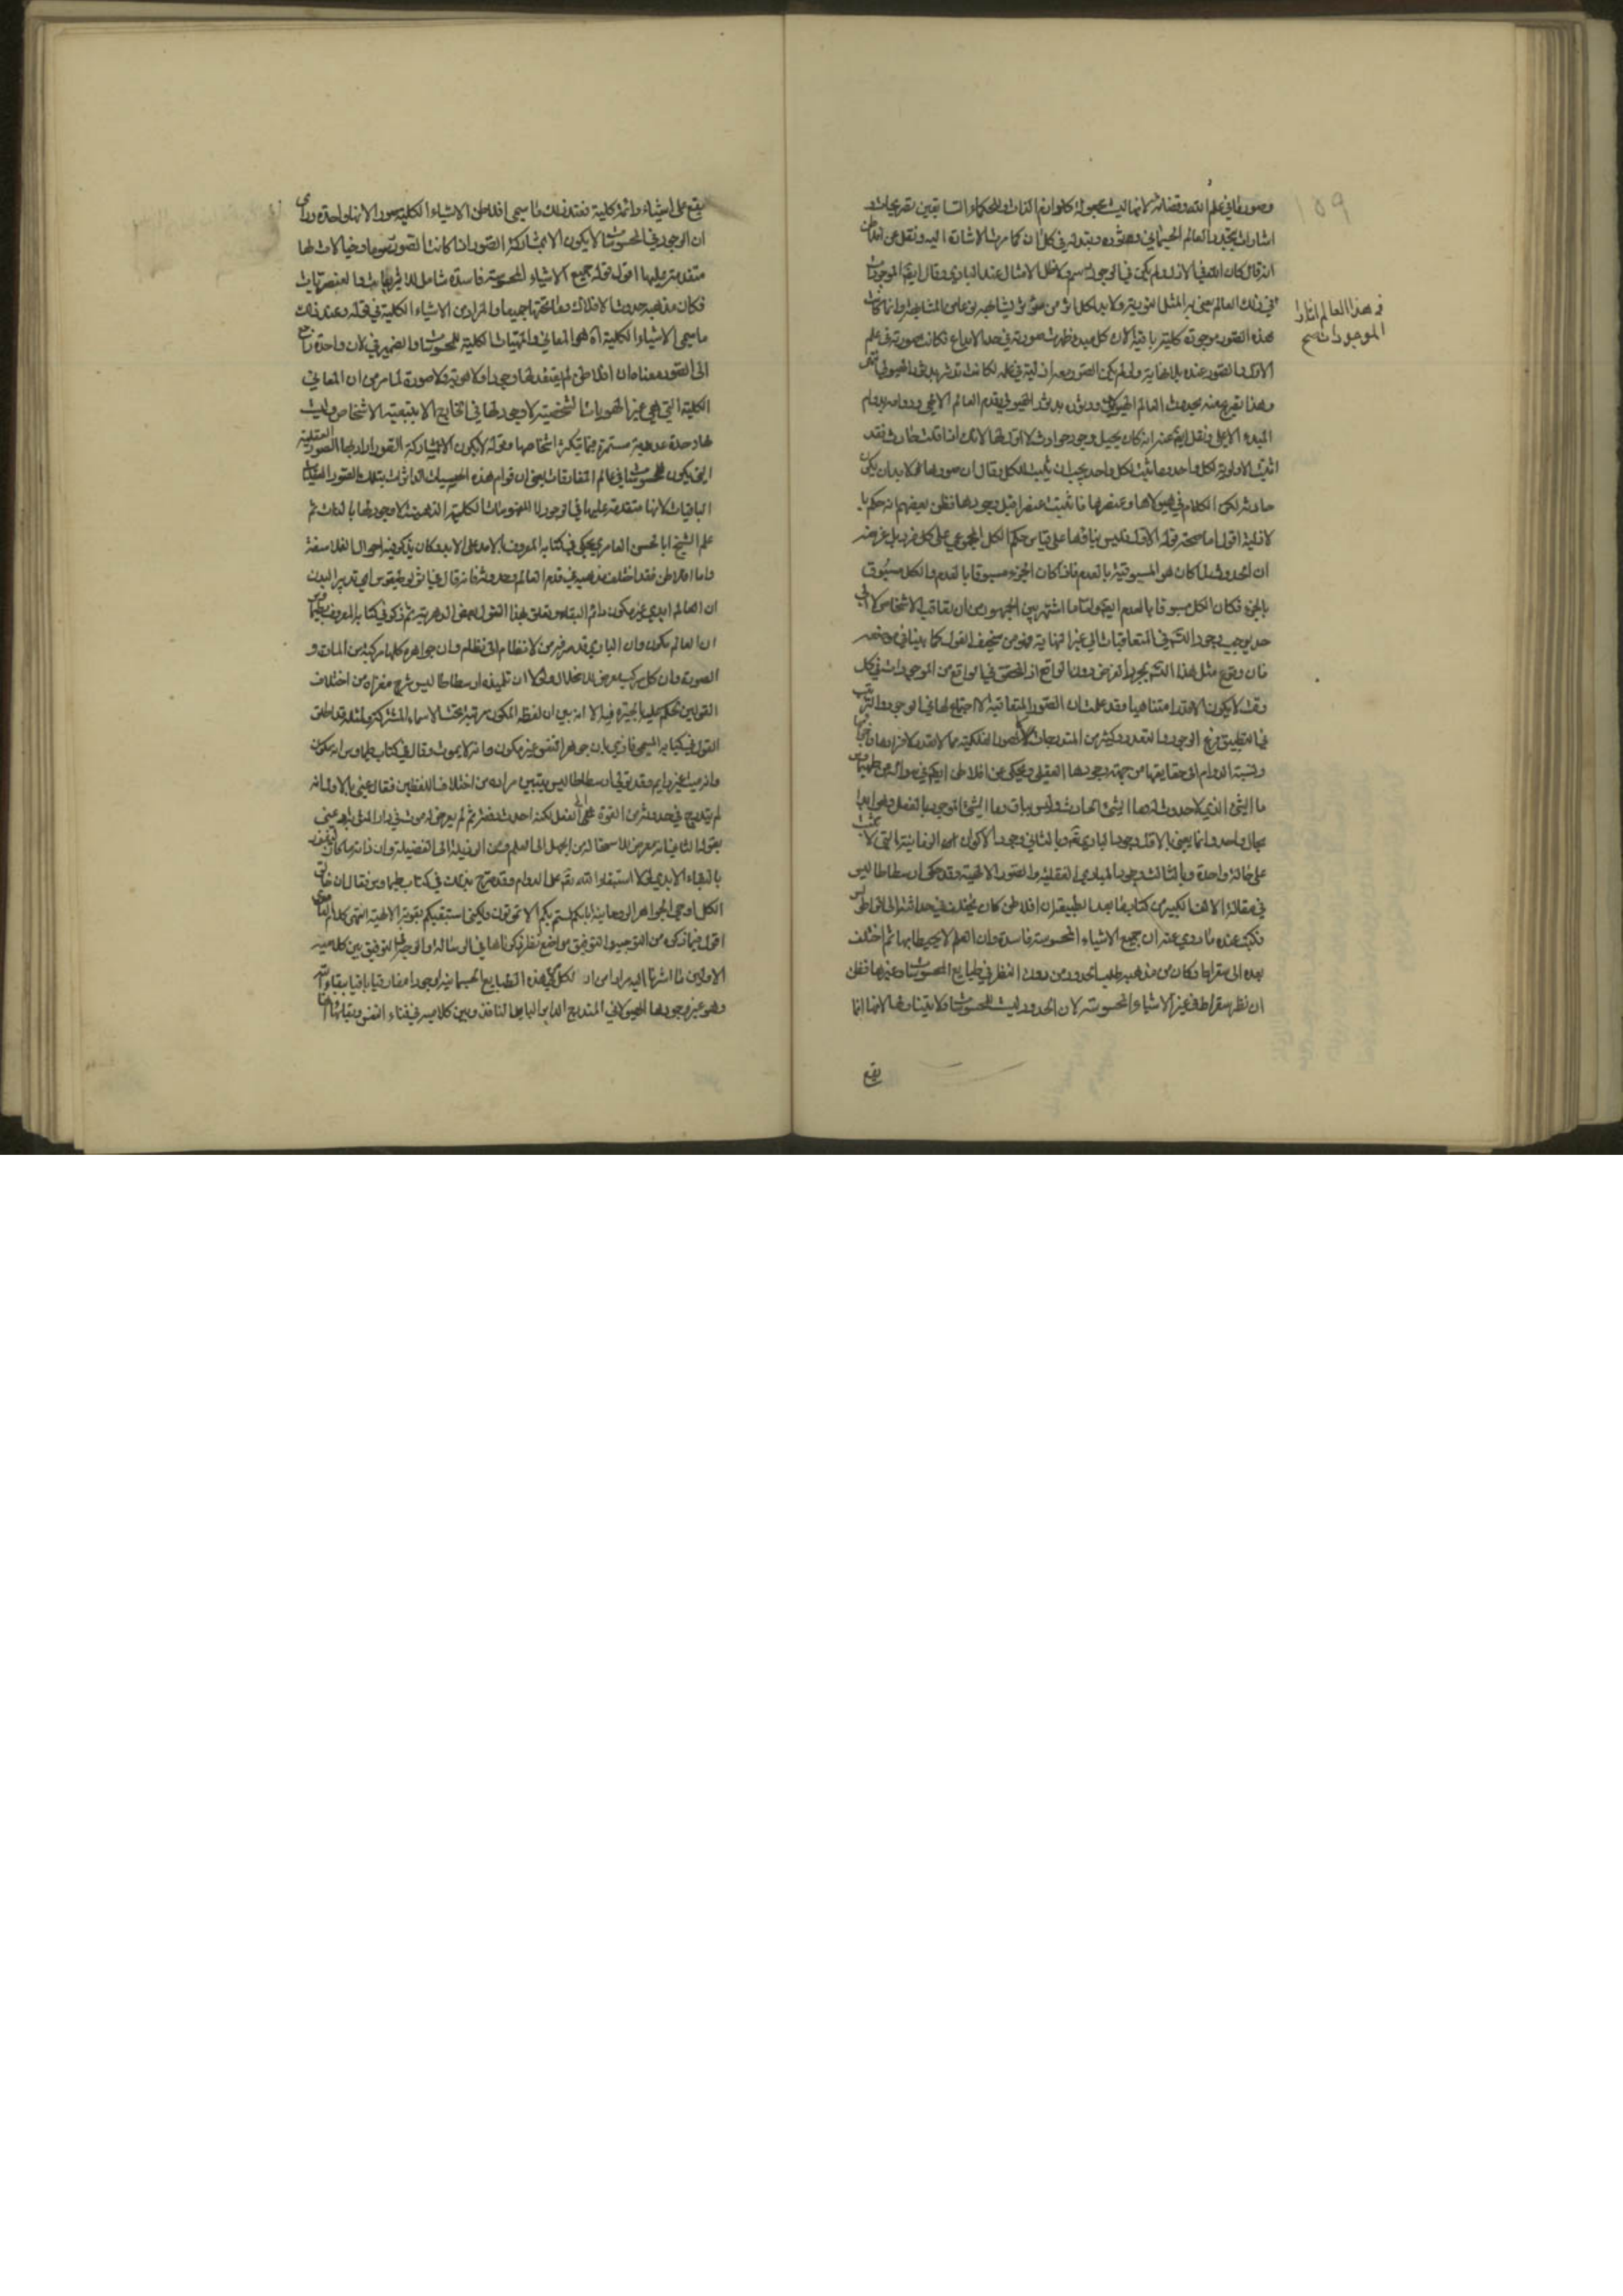 ١٥٩
وصورها في علم الله وقضائه لانها ليست مجعولة كلوازم الذات وللحكماء السابقين تصريحات و
اشارات بتجدد العالم الجسماني ودثوره وتبدله في كل آن كما مرت الاشارة اليه ونقل عن افلاطن
انه قال كان الله في الازل ولم يكن في الوجود رسم ولا طلل الا مثال عند الباري وقال ايضا الموجودات
في هذا العالم اثار الموجودات
في ذلك العالم يعني به المثل النورية ولا بد لكل اثر من مؤثر يشابهه نوعا من المشابهة وانما كانت
هذه الصور موجودة كلية باقية لان كل مبدع ظهرت صورته في حد الابداع فكانت صورته في علم
الاول والصور عنده بلا نهاية ولو لم يكن الصور معه في ازليته في علمه لكانت تدثر بدثور الهيولى
وهذا تصريح منه بحدوث العالم الهيولاني ودثوره بدثور الهيولى وبقدم العالم الالهي ودوامه بدوام
المبدء الاعلى ونقل ايضا عنه انه كان يحيل وجود حوادث لا اول لها لانك اذا قلت حادث فقد
اثبت الاولوية لكل واحد وما يثبت لكل واحد يجب ان يثبت للكل وقال ان صورها لا بد ان يكون
حادثة لكن الكلام في هيولاها وعنصرها فاثبت عنصرا قبل وجودها فظن بعضهم انه حكم با
لازلية اقول اما صحة قوله الاول فليس بناؤها على قياس حكم الكل المجموعي على كل فرد بل غرضه
ان الحدوث لما كان هو المسبوقية بالعدم فاذا كان الجزء مسبوقا بالعدم والكل مسبوق
بالجزء فكان الكل مسبوقا بالعدم ايضا واما ما اشتهر بين الجمهور من ان تعاقب الاشخاص لا الى
حد يوجب وجود التسلسل في المتعاقبات الى غير النهاية فهو من سخيف القول كما بينا في موضعه
فان وقوع مثل هذا التسلسل بمجرد الفرض دون الواقع اذ المتحقق في الواقع من الموجودات في كل
وقت لا يكون الا قدرا متناهيا وقد علمت ان الصور المتعاقبة لا اجتماع لها في الوجود والترتب
فيها والتطبيق فرع الوجود والتعدد
ونسبة الدوام الى حقايقها من جهة وجودها العقلي ويحكى عن افلاطن ايضا في سواله عن طيماوس
ما الشيء الذي لا حدوث له وما الشيء الحادث وليس بباق وما الشيء الموجود بالفعل وهو ابدا
بحال واحد وانما يعني بالاول وجود الباري تعالى وبالثاني وجود الاكوان الزمانية التي لا تثبت
على حالة واحدة وبالثالث وجود المبادي العقلية والصور الالهية وقد حكى ارسطاطاليس
في مقالة الالف الكبرى من كتاب ما بعد الطبيعة ان افلاطن كان يختلف في حداثته الى اقراطلس
فكتب عنه ما روي عنه ان جميع الاشياء المحسوسة فاسدة وان العلم لا يحيط بها ثم اختلف
بعده الى سقراط وكان من مذهبه طلب الحدود من دون النظر في طبايع المحسوسات وغيرها فظن
ان نظر سقراط في غير الاشياء المحسوسة لان الحدود ليست للمحسوسات ولا يتناولها لانها انما
يقع
يقع على اشياء دائمة كلية فعند ذلك ما سمى افلاطن الاشياء الكلية صورا لانها واحدة وراى
ان الوجود في المحسوسات لا يكون الا بمشاركة الصور اذا كانت الصور رسوما وخيالات لها
متقدمة عليها اقول قوله جميع الاشياء المحسوسة فاسدة شامل للاثيريات والعنصريات
فكان مذهبه حدوث الافلاك وما تحتها جميعا والمراد من الاشياء الكلية في قوله وعند ذلك
ما سمى الاشياء الكلية اه هو المعاني والمهيات الكلية للمحسوسات والضمير في لان واحدة راجع
الى الصور معناه ان افلاطن لم يعتقد لها وجودا ولا هوية ولا صورة لما مر من ان المعاني
الكلية التي هي غير الهويات الشخصية لا وجود لها في الخارج الا بتبعية الاشخاص وليست
لها وحدة عددية مستمرة فيما يتكثر اشخاصها وقوله لا يكون الا بمشاركة الصور اراد بها الصور العقلية
التي يكون للمحسوسات في عالم المفارقات يعني ان قوام هذه الحسيات الداثرات بتلك الصور
الباقيات لانها متقدمة عليها في الوجود لا المفهومات الكلية الذهنية اذ لا وجود لها بالذات ثم
علم الشيخ ابا الحسن العامري يحكي في كتابه المعروف بالامد على الابد وكان يذكر فيه احوال الفلاسفة
واما افلاطن فقد اختلف مذهبه في قدم العالم وحدوثه فانه قال في اي تدبير البدن
ان العالم ابدي غير مكون دائم البقاء وتعلق بهذا القول بعض الدهرية ثم ذكر في كتابه المعروف بطيماوس
ان العالم مكون وان الباري قد صرفه من لا نظام الى نظام وان جواهره كلها مركبة من المادة و
الصورة وان كل مركب معرض للانحلال ولولا ان تلميذه ارسطاطاليس شرح مغزاه من اختلاف
القولين لحكم عليه بالحيرة فيه الا انه بين ان لفظ المكون مرتبة تحت الاسماء المشتركة
القول في كتابه ان جوهر النفس غير مكون وانه لا يموت وقال في كتاب طيماوس انه مكون
وانه ميت غير دايم وقد تولى ارسطاطاليس بتبيين مراده من اختلاف اللفظين فقال عنى بالاول انه
لم يتدرج في حدوثه من القوة الى الفعل لكنه احدث دفعة ثم لم يعرض له موت في دار المثوبة وعنى
بقوله الثاني انه معرض للاستحالة من الجهل الى العلم ومن الرذيلة الى الفضيلة وان ذاته ما كان ليفوز
بالبقاء الابدي لولا استبقاء الله تعالى على الدوام وقد صرح بذلك في كتاب طيماوس فقال ان خالق
الكل اوحى الى الجواهر الروحانية انكم لستم بكم الا تموتون ولكني استبقيكم بقوة الالهية انتهى كلامه
اقول فيما ذكره من التوجيه والتوفيق مواضع نظر ذكرناها في الرسالة والوجه في التوفيق بين كلاميه
الاولين ما اشرنا اليه مرارا من ان لكل من هذه الطبايع الجسمانية وجودا مفارقيا باقيا ببقاء الله
وهو غير وجودها الهيولاني المتدرج